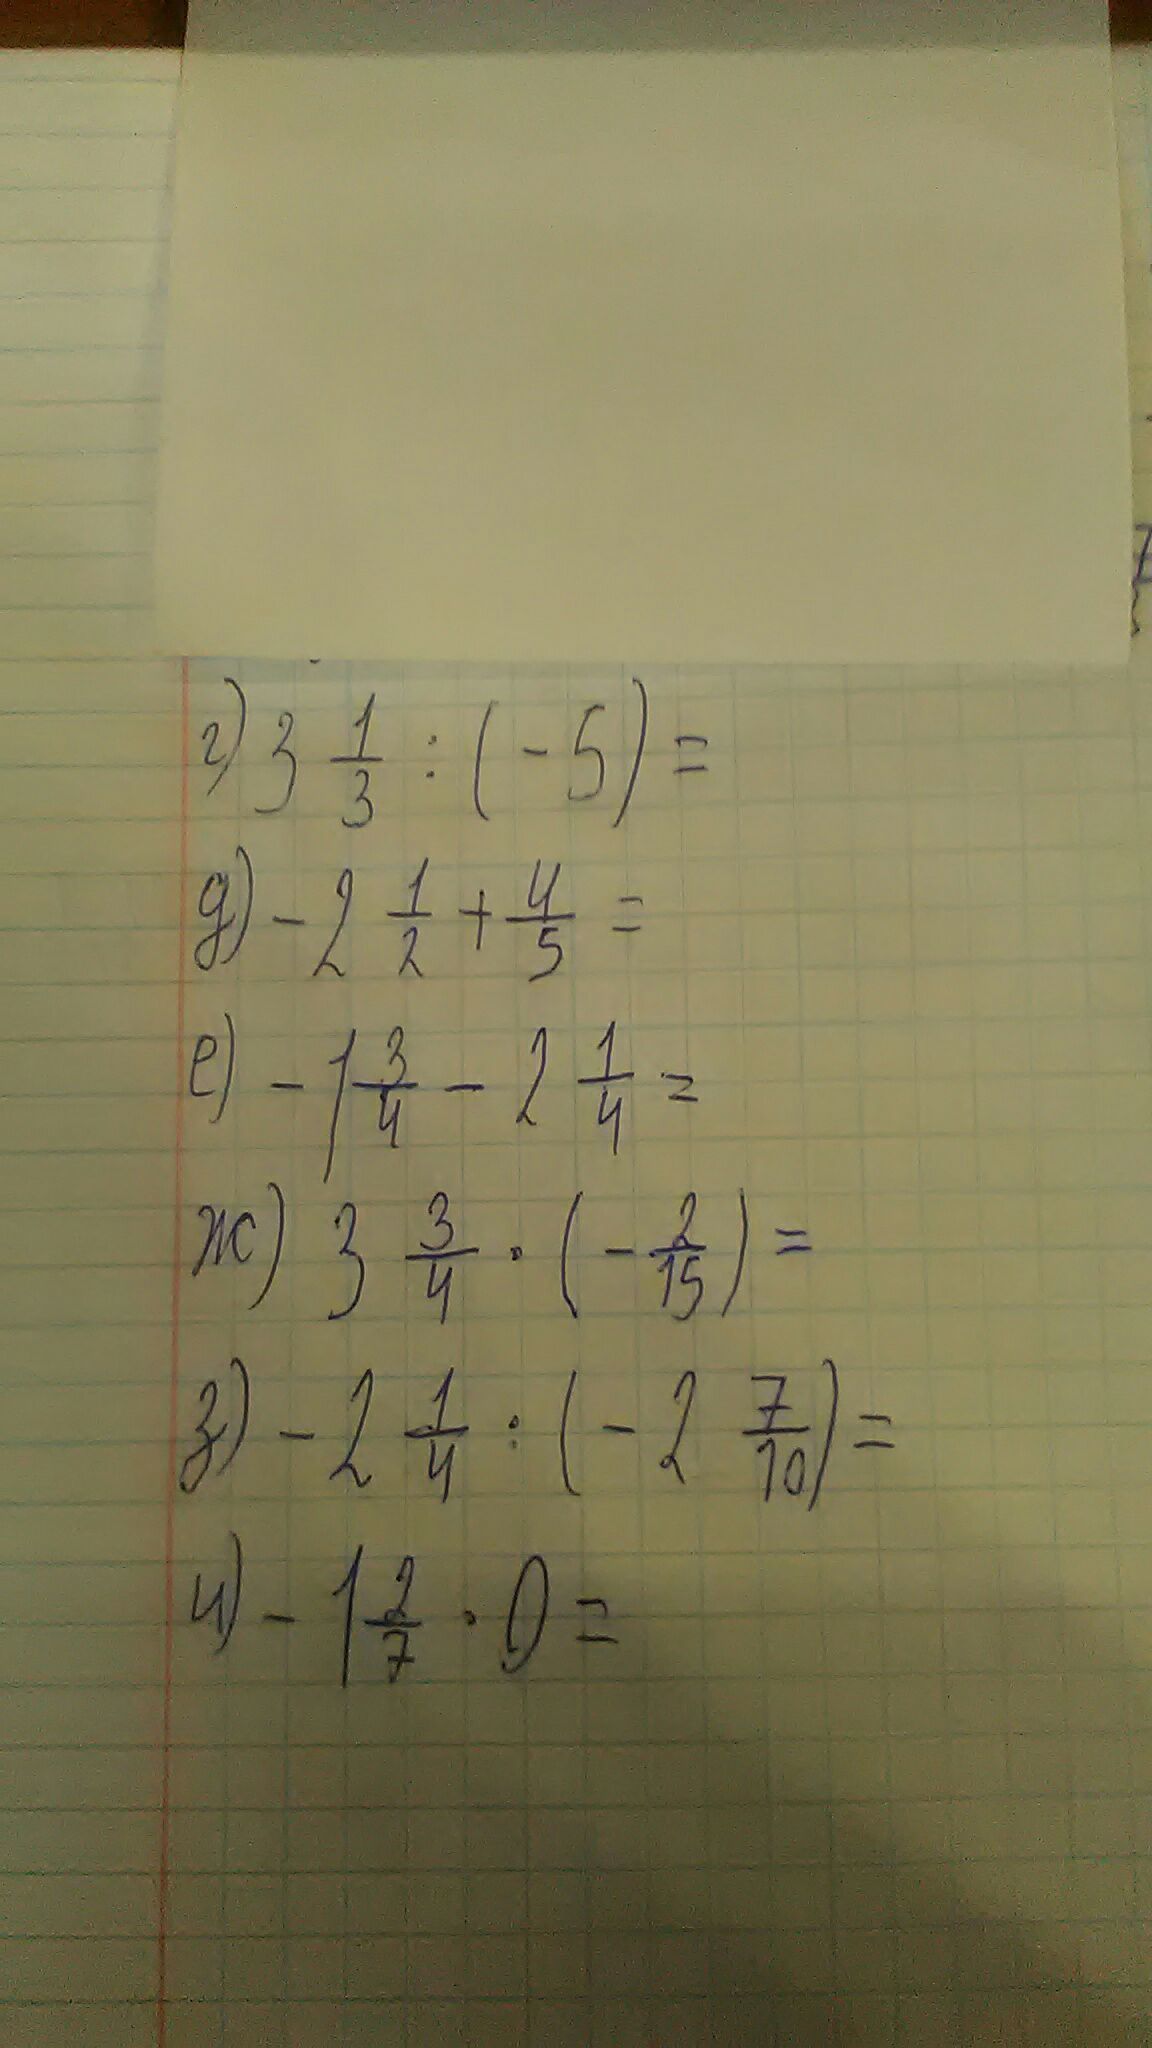 г) 3 1/3 : (-5) =
д) -2 1/2 + 4/5 =
е) -1 3/4 - 2 1/4 =
ж) 3 3/4 · (-2/15) =
з) -2 1/4 : (-2 7/10) =
и) -1 2/7 · 0 =